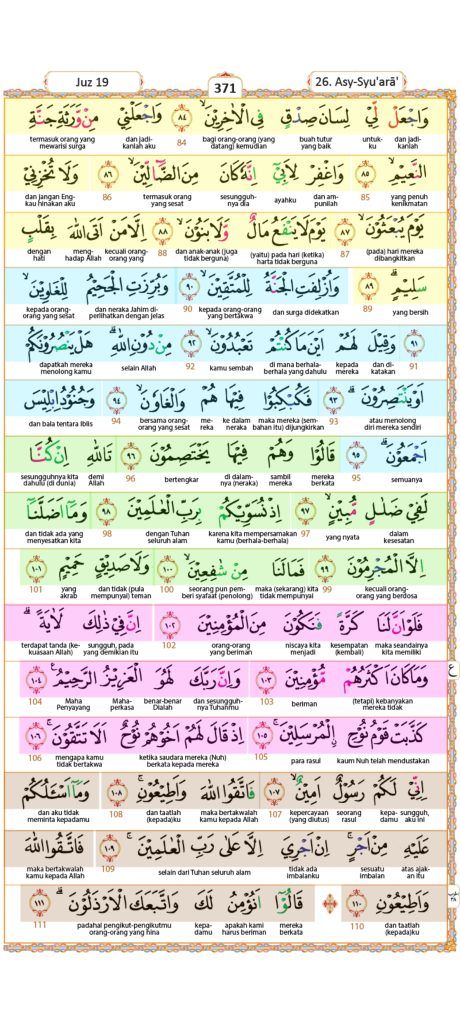 Juz 19
371
26. Asy-Syu'arā'
وَاجْعَلْ لِّيْ لِسَانَ صِدْقٍ فِى الْاٰخِرِيْنَ ۙ ٨٤ وَاجْعَلْنِيْ مِنْ وَّرَثَةِ جَنَّةِ
dan jadi-kanlah untuk-ku buah tutur yang baik bagi orang-orang (yang datang) kemudian 84 dan jadi-kanlah aku termasuk orang yang mewarisi surga
النَّعِيْمِ ۙ ٨٥ وَاغْفِرْ لِاَبِيْٓ اِنَّهٗ كَانَ مِنَ الضَّاۤلِّيْنَ ۙ ٨٦ وَلَا تُخْزِنِيْ
yang penuh kenikmatan 85 dan am-punilah ayahku sesungguh-nya dia termasuk orang yang sesat 86 dan jangan Eng-kau hinakan aku
يَوْمَ يُبْعَثُوْنَ ۙ ٨٧ يَوْمَ لَا يَنْفَعُ مَالٌ وَّلَا بَنُوْنَ ۙ ٨٨ اِلَّا مَنْ اَتَى اللّٰهَ بِقَلْبٍ
(pada) hari mereka dibangkitkan 87 (yaitu) pada hari (ketika) harta tidak berguna dan anak-anak (juga tidak berguna) 88 kecuali orang-orang yang meng-hadap Allah dengan hati
سَلِيْمٍ ۗ ٨٩ وَاُزْلِفَتِ الْجَنَّةُ لِلْمُتَّقِيْنَ ۙ ٩٠ وَبُرِّزَتِ الْجَحِيْمُ لِلْغَاوِيْنَ ۙ
yang bersih 89 dan surga didekatkan kepada orang-orang yang bertakwa 90 dan neraka Jahim di-perlihatkan dengan jelas kepada orang-orang yang sesat
٩١ وَقِيْلَ لَهُمْ اَيْنَ مَا كُنْتُمْ تَعْبُدُوْنَ ۙ ٩٢ مِنْ دُوْنِ اللّٰهِ ۗ هَلْ يَنْصُرُوْنَكُمْ
91 dan di-katakan kepada mereka di mana berhala-berhala yang dahulu kamu sembah 92 selain Allah dapatkah mereka menolong kamu
اَوْ يَنْتَصِرُوْنَ ۗ ٩٣ فَكُبْكِبُوْا فِيْهَا هُمْ وَالْغَاوٗنَ ۙ ٩٤ وَجُنُوْدُ اِبْلِيْسَ
atau menolong diri mereka sendiri 93 maka mereka (sem-bahan itu) dijungkirkan ke dalam neraka me-reka bersama orang-orang yang sesat 94 dan bala tentara Iblis
اَجْمَعُوْنَ ۗ ٩٥ قَالُوْا وَهُمْ فِيْهَا يَخْتَصِمُوْنَ ۙ ٩٦ تَاللّٰهِ اِنْ كُنَّا
semuanya 95 mereka berkata sambil mereka di dalam-nya (neraka) bertengkar 96 demi Allah sesungguhnya kita dahulu (di dunia)
لَفِيْ ضَلٰلٍ مُّبِيْنٍ ۙ ٩٧ اِذْ نُسَوِّيْكُمْ بِرَبِّ الْعٰلَمِيْنَ ٩٨ وَمَآ اَضَلَّنَآ
dalam kesesatan yang nyata 97 karena kita mempersamakan kamu (berhala-berhala) dengan Tuhan seluruh alam 98 dan tidak ada yang menyesatkan kita
اِلَّا الْمُجْرِمُوْنَ ٩٩ فَمَا لَنَا مِنْ شٰفِعِيْنَ ۙ ١٠٠ وَلَا صَدِيْقٍ حَمِيْمٍ ١٠١
kecuali orang-orang yang berdosa 99 maka (sekarang) kita tidak mempunyai seorang pun pem-beri syafaat (penolong) 100 dan tidak (pula mempunyai) teman yang akrab 101
فَلَوْ اَنَّ لَنَا كَرَّةً فَنَكُوْنَ مِنَ الْمُؤْمِنِيْنَ ١٠٢ اِنَّ فِيْ ذٰلِكَ لَاٰيَةً ۗ
maka seandainya kita memiliki kesempatan (kembali) niscaya kita menjadi orang-orang yang beriman 102 sungguh, pada yang demikian itu terdapat tanda (ke-kuasaan Allah)
وَمَا كَانَ اَكْثَرُهُمْ مُّؤْمِنِيْنَ ١٠٣ وَاِنَّ رَبَّكَ لَهُوَ الْعَزِيْزُ الرَّحِيْمُ ࣖ ١٠٤
(tetapi) kebanyakan mereka tidak beriman 103 dan sesungguh-nya Tuhanmu benar-benar Dialah Maha-perkasa Maha Penyayang 104
ع
كَذَّبَتْ قَوْمُ نُوْحِ ِۨالْمُرْسَلِيْنَ ۚ ١٠٥ اِذْ قَالَ لَهُمْ اَخُوْهُمْ نُوْحٌ اَلَا تَتَّقُوْنَ ۚ ١٠٦
kaum Nuh telah mendustakan para rasul 105 ketika saudara mereka (Nuh) berkata kepada mereka mengapa kamu tidak bertakwa 106
اِنِّيْ لَكُمْ رَسُوْلٌ اَمِيْنٌ ۙ ١٠٧ فَاتَّقُوا اللّٰهَ وَاَطِيْعُوْنِ ۚ ١٠٨ وَمَآ اَسْـَٔلُكُمْ
sungguh, aku ini kepa-damu seorang rasul kepercayaan (yang diutus) 107 maka bertakwalah kamu kepada Allah dan taatlah (kepada)ku 108 dan aku tidak meminta kepadamu
عَلَيْهِ مِنْ اَجْرٍ ۚ اِنْ اَجْرِيَ اِلَّا عَلٰى رَبِّ الْعٰلَمِيْنَ ۚ ١٠٩ فَاتَّقُوا اللّٰهَ
atas ajak-an itu sesuatu imbalan tidak ada imbalanku selain dari Tuhan seluruh alam 109 maka bertakwalah kamu kepada Allah
وَاَطِيْعُوْنِ ١١٠ قَالُوْٓا اَنُؤْمِنُ لَكَ وَاتَّبَعَكَ الْاَرْذَلُوْنَ ۗ ١١١
dan taatlah (kepada)ku 110 mereka berkata apakah kami harus beriman kepa-damu padahal pengikut-pengikutmu orang-orang yang hina 111